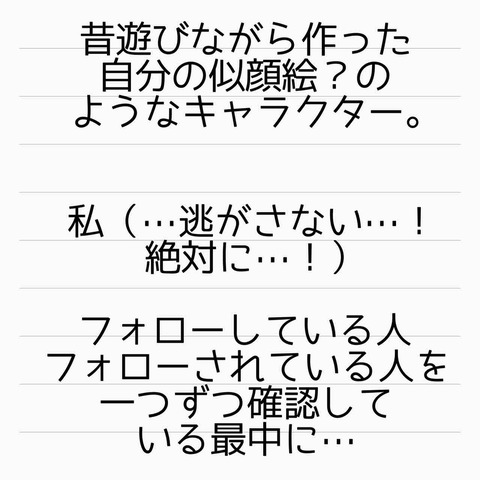 昔遊びながら作った
自分の似顔絵？の
ようなキャラクター。
私（…逃がさない…！
絶対に…！）
フォローしている人
フォローされている人を
一つずつ確認して
いる最中に…